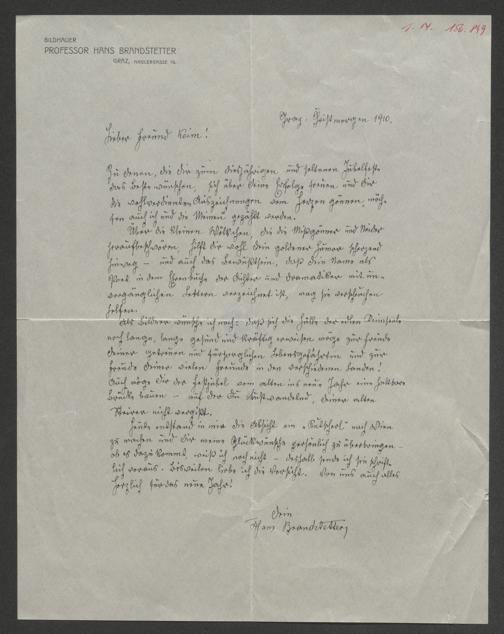 BILDHAUER
PROFESSOR HANS BRANDSTETTER
GRAZ,
I. N. 156.849
Graz, Christmorgen 1910.
Lieber Freund Keim!
Zu denen, die dir zum diesjährigen und seltenen Jubelfeste
das Beste wünschen, sich über deine Erfolge freuen und dir
die wohlverdienten Auszeichnungen vom Herzen gönnen, mö-
gen auch ich und die Meinen gezählt werden.
Über die kleinen Wölkchen, die die Mißgönner und Neider
heraufbeschwören, hilft dir wohl dein goldener Humor scherzend
hinweg – und auch das Bewußtsein, daß dein Name als
Poet in dem Ehrenbuche der Dichter und Dramatiker mit un-
vergänglichen Lettern verzeichnet ist, mag sie verscheuchen
helfen.
Als Bildner wünsche ich noch: daß sich die Hülle der edlen
noch lange, lange gesund und kräftig erweisen möge zur Freude
deiner getreuen und fürsorglichen Lebensgefährtin und zur
Freude deiner vielen Freunde in den verschiedenen Landen!
Auch möge dir der Festjubel vom alten ins neue Jahr eine haltbare
Brücke bauen – auf der du lustwandelnd, deiner alten
Steirer nicht vergißt.
Heute entstand in mir die Absicht ein nach Wien
zu machen und dir meine Glückwünsche persönlich zu überbringen –
ob es dazu kommt, weiß ich noch nicht – deshalb sende ich sie schrift-
lich voraus. Bisweilen liebe ich die Vorsicht. Von uns auch alles
herzlich für das neue Jahr!
Dein
Hans Brandstetter